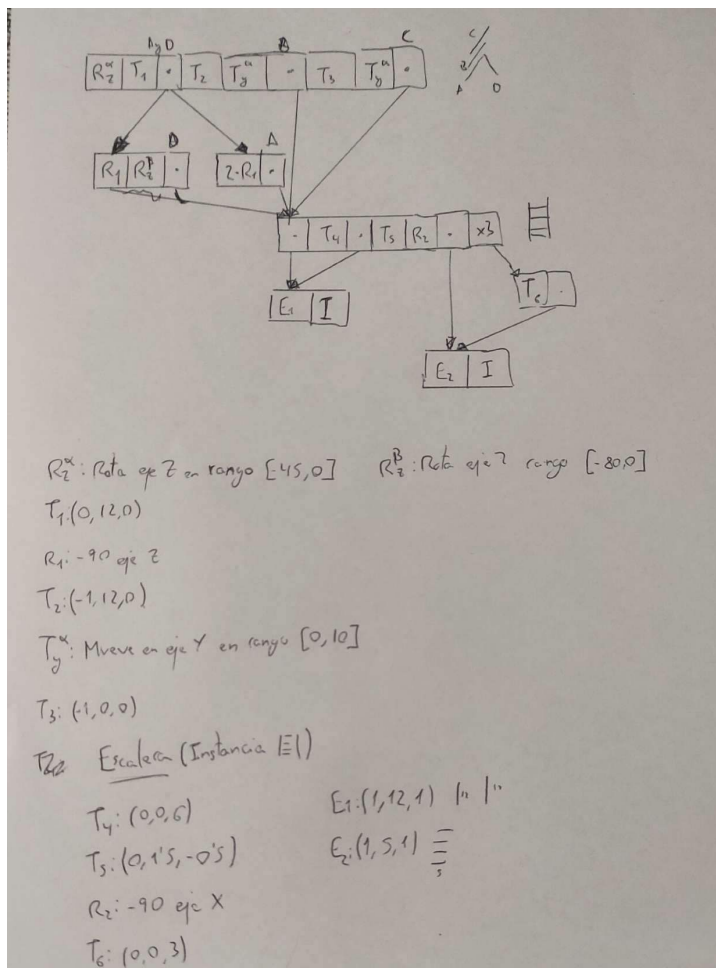 A y D B C
R_z^α T_1 · T_2 T_y^α · T_3 T_y^α ·
C
B
A D
D A
R_1 R_z^β · 2·R_1 ·
· T_4 · T_5 R_2 · x3
E_1 I
T_6 ·
E_2 I
R_z^α: Rota eje Z en rango [-45,0] R_z^β: Rota eje Z rango [-80,0]
T_1:(0,12,0)
R_1: -90 eje Z
T_2:(-1,12,0)
T_y^α: Mueve en eje Y en rango [0,10]
T_3: (-1,0,0)
Escalera (Instancia |E|)
T_4: (0,0,6) E_1:(1,12,1) |" |"
T_5: (0,1'5,-0'5) E_2:(1,5,1)
5
R_2: -90 eje X
T_6: (0,0,3)